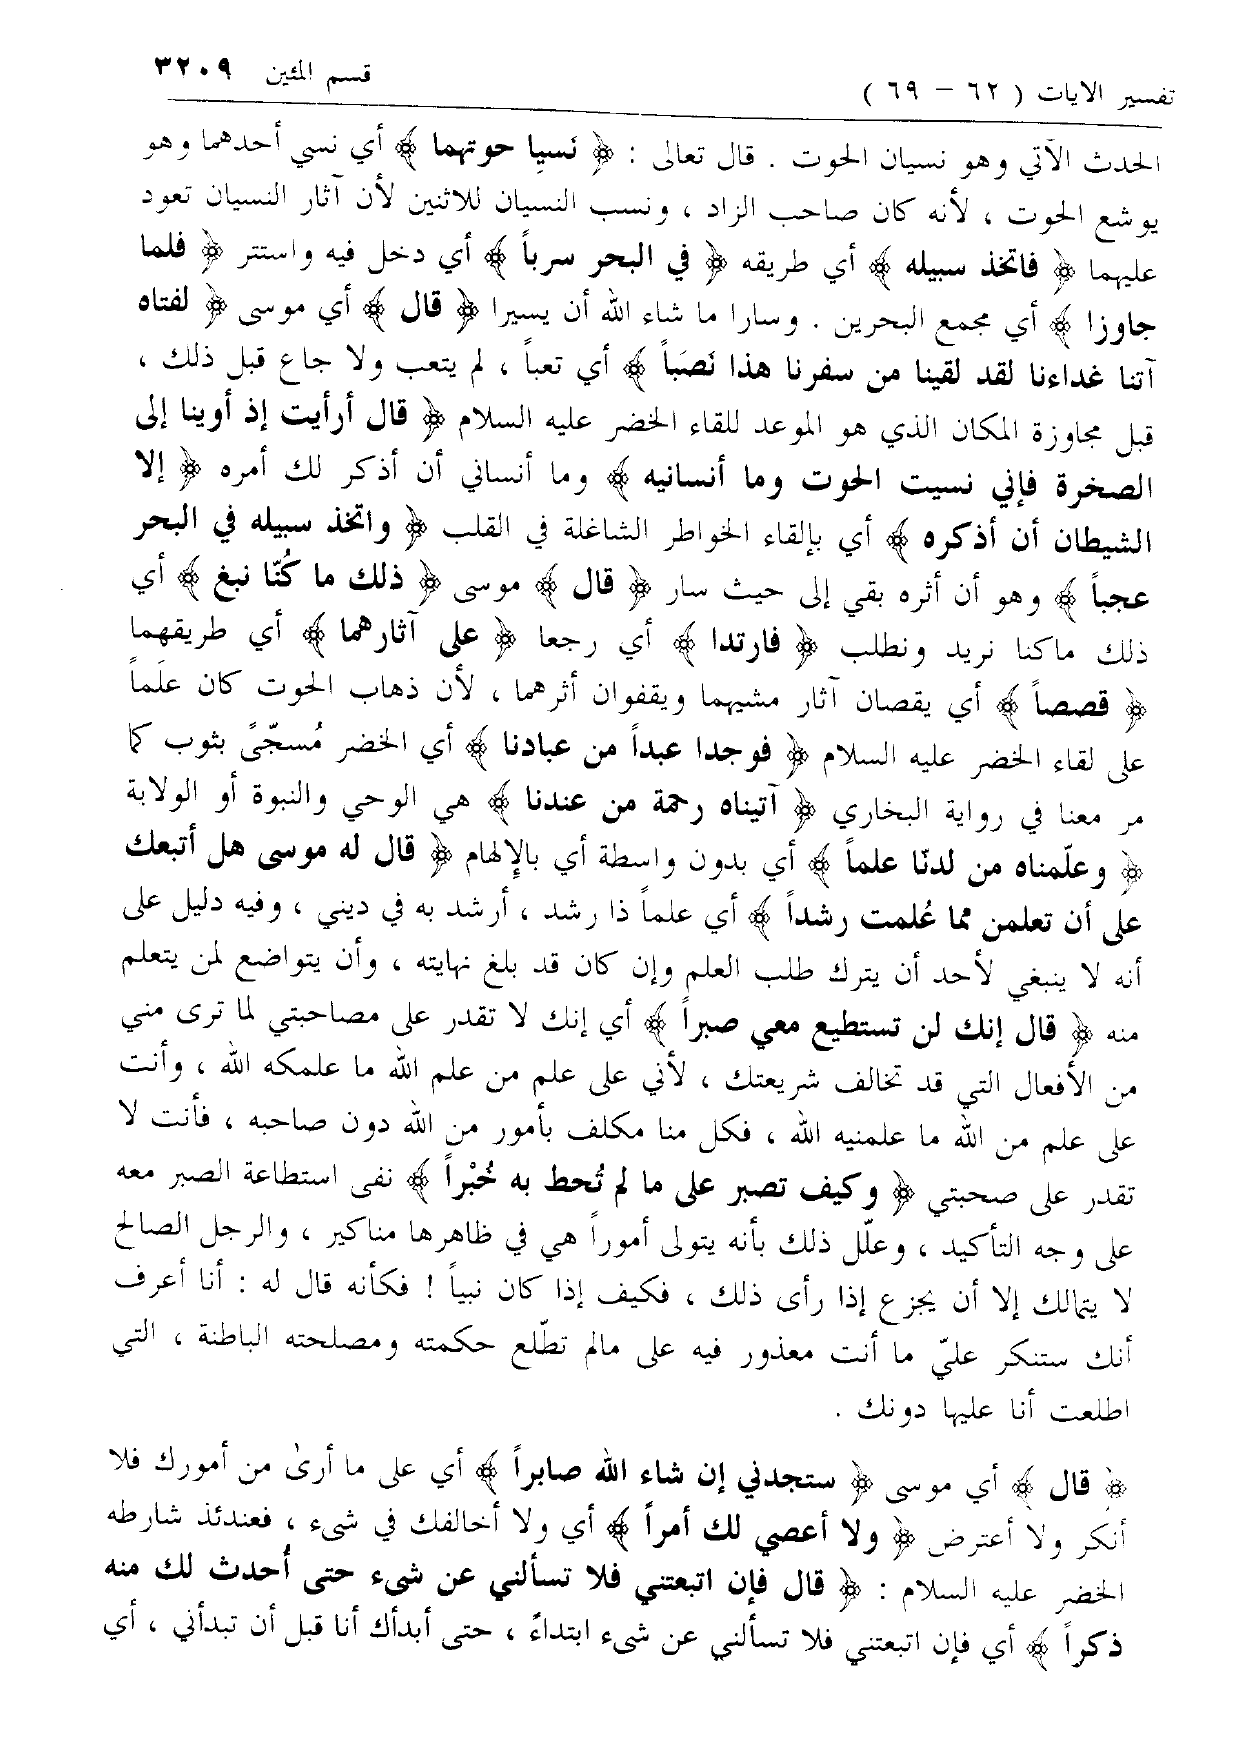 تفسير الآيات ( ٦٢ – ٦٩ ) قسم المئين ٣٢٠٩
الحدث الآتي وهو نسيان الحوت . قال تعالى : ﴿ نَسِيا حوتهما ﴾ أي نسي أحدهما وهو
يوشع الحوت ، لأنه كان صاحب الزاد ، ونسب النسيان للاثنين لأن آثار النسيان تعود
عليهما ﴿ فاتخذ سبيله ﴾ أي طريقه ﴿ في البحر سرباً ﴾ أي دخل فيه واستتر ﴿ فلما
جاوزا ﴾ أي مجمع البحرين . وسارا ما شاء الله أن يسيرا ﴿ قال ﴾ أي موسى ﴿ لفتاه
آتنا غداءنا لقد لقينا من سفرنا هذا نَصَبَاً ﴾ أي تعباً ، لم يتعب ولا جاع قبل ذلك ،
قبل مجاوزة المكان الذي هو الموعد للقاء الخضر عليه السلام ﴿ قال أرأيت إذ أوينا إلى
الصخرة فإني نسيت الحوت وما أنسانيه ﴾ وما أنساني أن أذكر لك أمره ﴿ إلا
الشيطان أن أذكره ﴾ أي بإلقاء الخواطر الشاغلة في القلب ﴿ واتخذ سبيله في البحر
عجباً ﴾ وهو أن أثره بقي إلى حيث سار ﴿ قال ﴾ موسى ﴿ ذلك ما كُنّا نبغ ﴾ أي
ذلك ماكنا نريد ونطلب ﴿ فارتدا ﴾ أي رجعا ﴿ على آثارهما ﴾ أي طريقهما
﴿ قصصاً ﴾ أي يقصان آثار مشيهما ويقفوان أثرهما ، لأن ذهاب الحوت كان علَماً
على لقاء الخضر عليه السلام ﴿ فوجدا عبداً من عبادنا ﴾ أي الخضر مُسجّىً بثوب كما
مر معنا في رواية البخاري ﴿ آتيناه رحمة من عندنا ﴾ هي الوحي والنبوة أو الولاية
﴿ وعلّمناه من لدنّا علماً ﴾ أي بدون واسطة أي بالإلهام ﴿ قال له موسى هل أتبعك
على أن تعلمن مما عُلمت رشداً ﴾ أي علماً ذا رشد ، أرشد به في ديني ، وفيه دليل على
أنه لا ينبغي لأحد أن يترك طلب العلم وإن كان قد بلغ نهايته ، وأن يتواضع لمن يتعلم
منه ﴿ قال إنك لن تستطيع معي صبراً ﴾ أي إنك لا تقدر على مصاحبتي لما ترى مني
من الأفعال التي قد تخالف شريعتك ، لأني على علم من علم الله ما علمكه الله ، وأنت
على علم من الله ما علمنيه الله ، فكل منا مكلف بأمور من الله دون صاحبه ، فأنت لا
تقدر على صحبتي ﴿ وكيف تصبر على ما لم تُحط به خُبْراً ﴾ نفى استطاعة الصبر معه
على وجه التأكيد ، وعلّل ذلك بأنه يتولى أموراً هي في ظاهرها مناكير ، والرجل الصالح
لا يتمالك إلا أن يجزع إذا رأى ذلك ، فكيف إذا كان نبياً ! فكأنه قال له : أنا أعرف
أنك ستنكر عليّ ما أنت معذور فيه على مالم تطّلع حكمته ومصلحته الباطنة ، التي
اطلعت أنا عليها دونك .
﴿ قال ﴾ أي موسى ﴿ ستجدني إن شاء الله صابراً ﴾ أي على ما أرىٰ من أمورك فلا
أنكر ولا أعترض ﴿ ولا أعصي لك أمراً ﴾ أي ولا أخالفك في شيء ، فعندئذ شارطه
الخضر عليه السلام : ﴿ قال فإن اتبعتني فلا تسألني عن شيء حتى أُحدث لك منه
ذكراً ﴾ أي فإن اتبعتني فلا تسألني عن شيء ابتداءً ، حتى أبدأك أنا قبل أن تبدأني ، أي